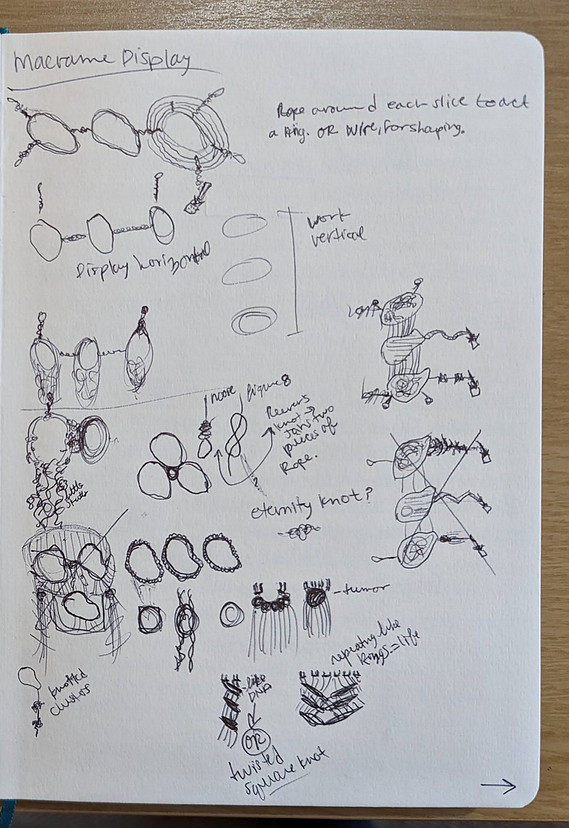 Macrame Display
Rope around each slice to act
a ring. OR wire, for shaping.
Display horizontal
work
vertical
noose
figure 8
knot →
joins two
pieces of
Rope.
eternity knot?
-tumor
repeating like
Rings = life
knotted
clusters
like
DNA
OR
twisted
square knot